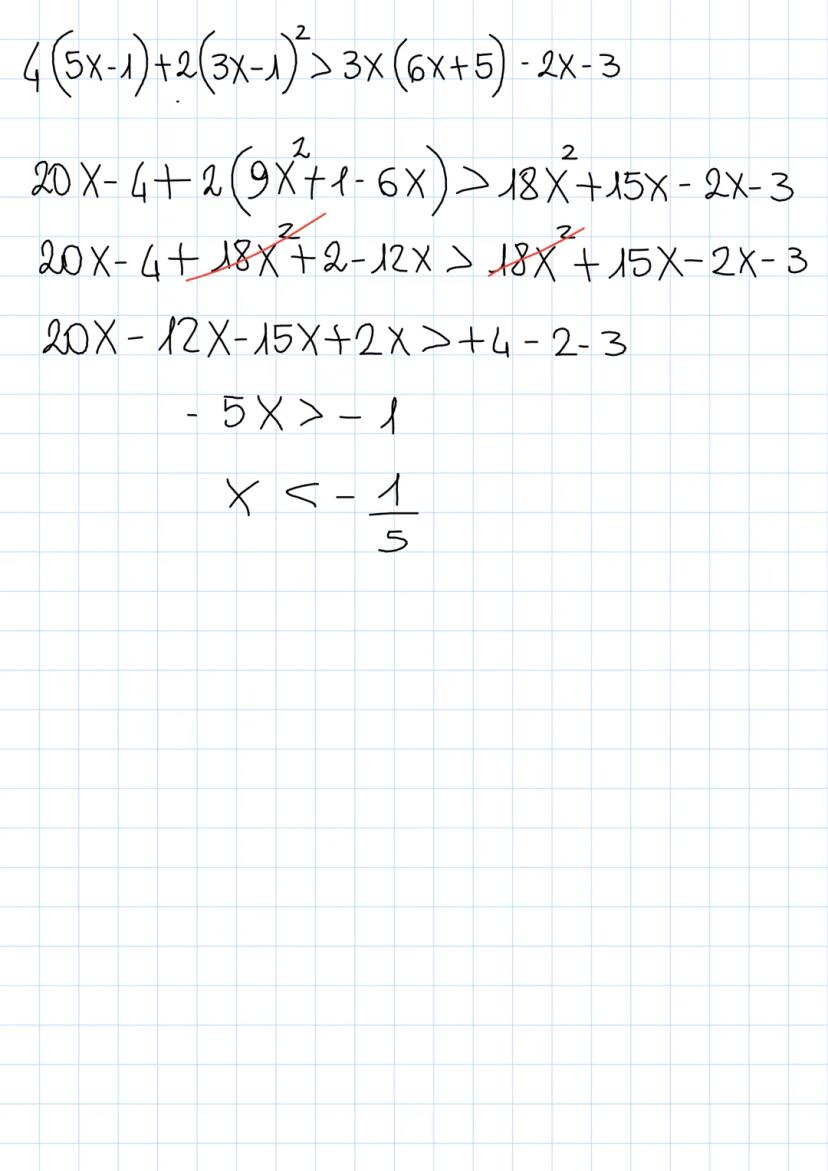 4(5x-1)+2(3x-1)²>3x(6x+5)-2x-3
20x-4+2(9x²+1-6x)>18x²+15x-2x-3
20x-4+18x²+2-12x>18x²+15x-2x-3
20x-12x-15x+2x>+4-2-3
-5x>-1
x<-1/5